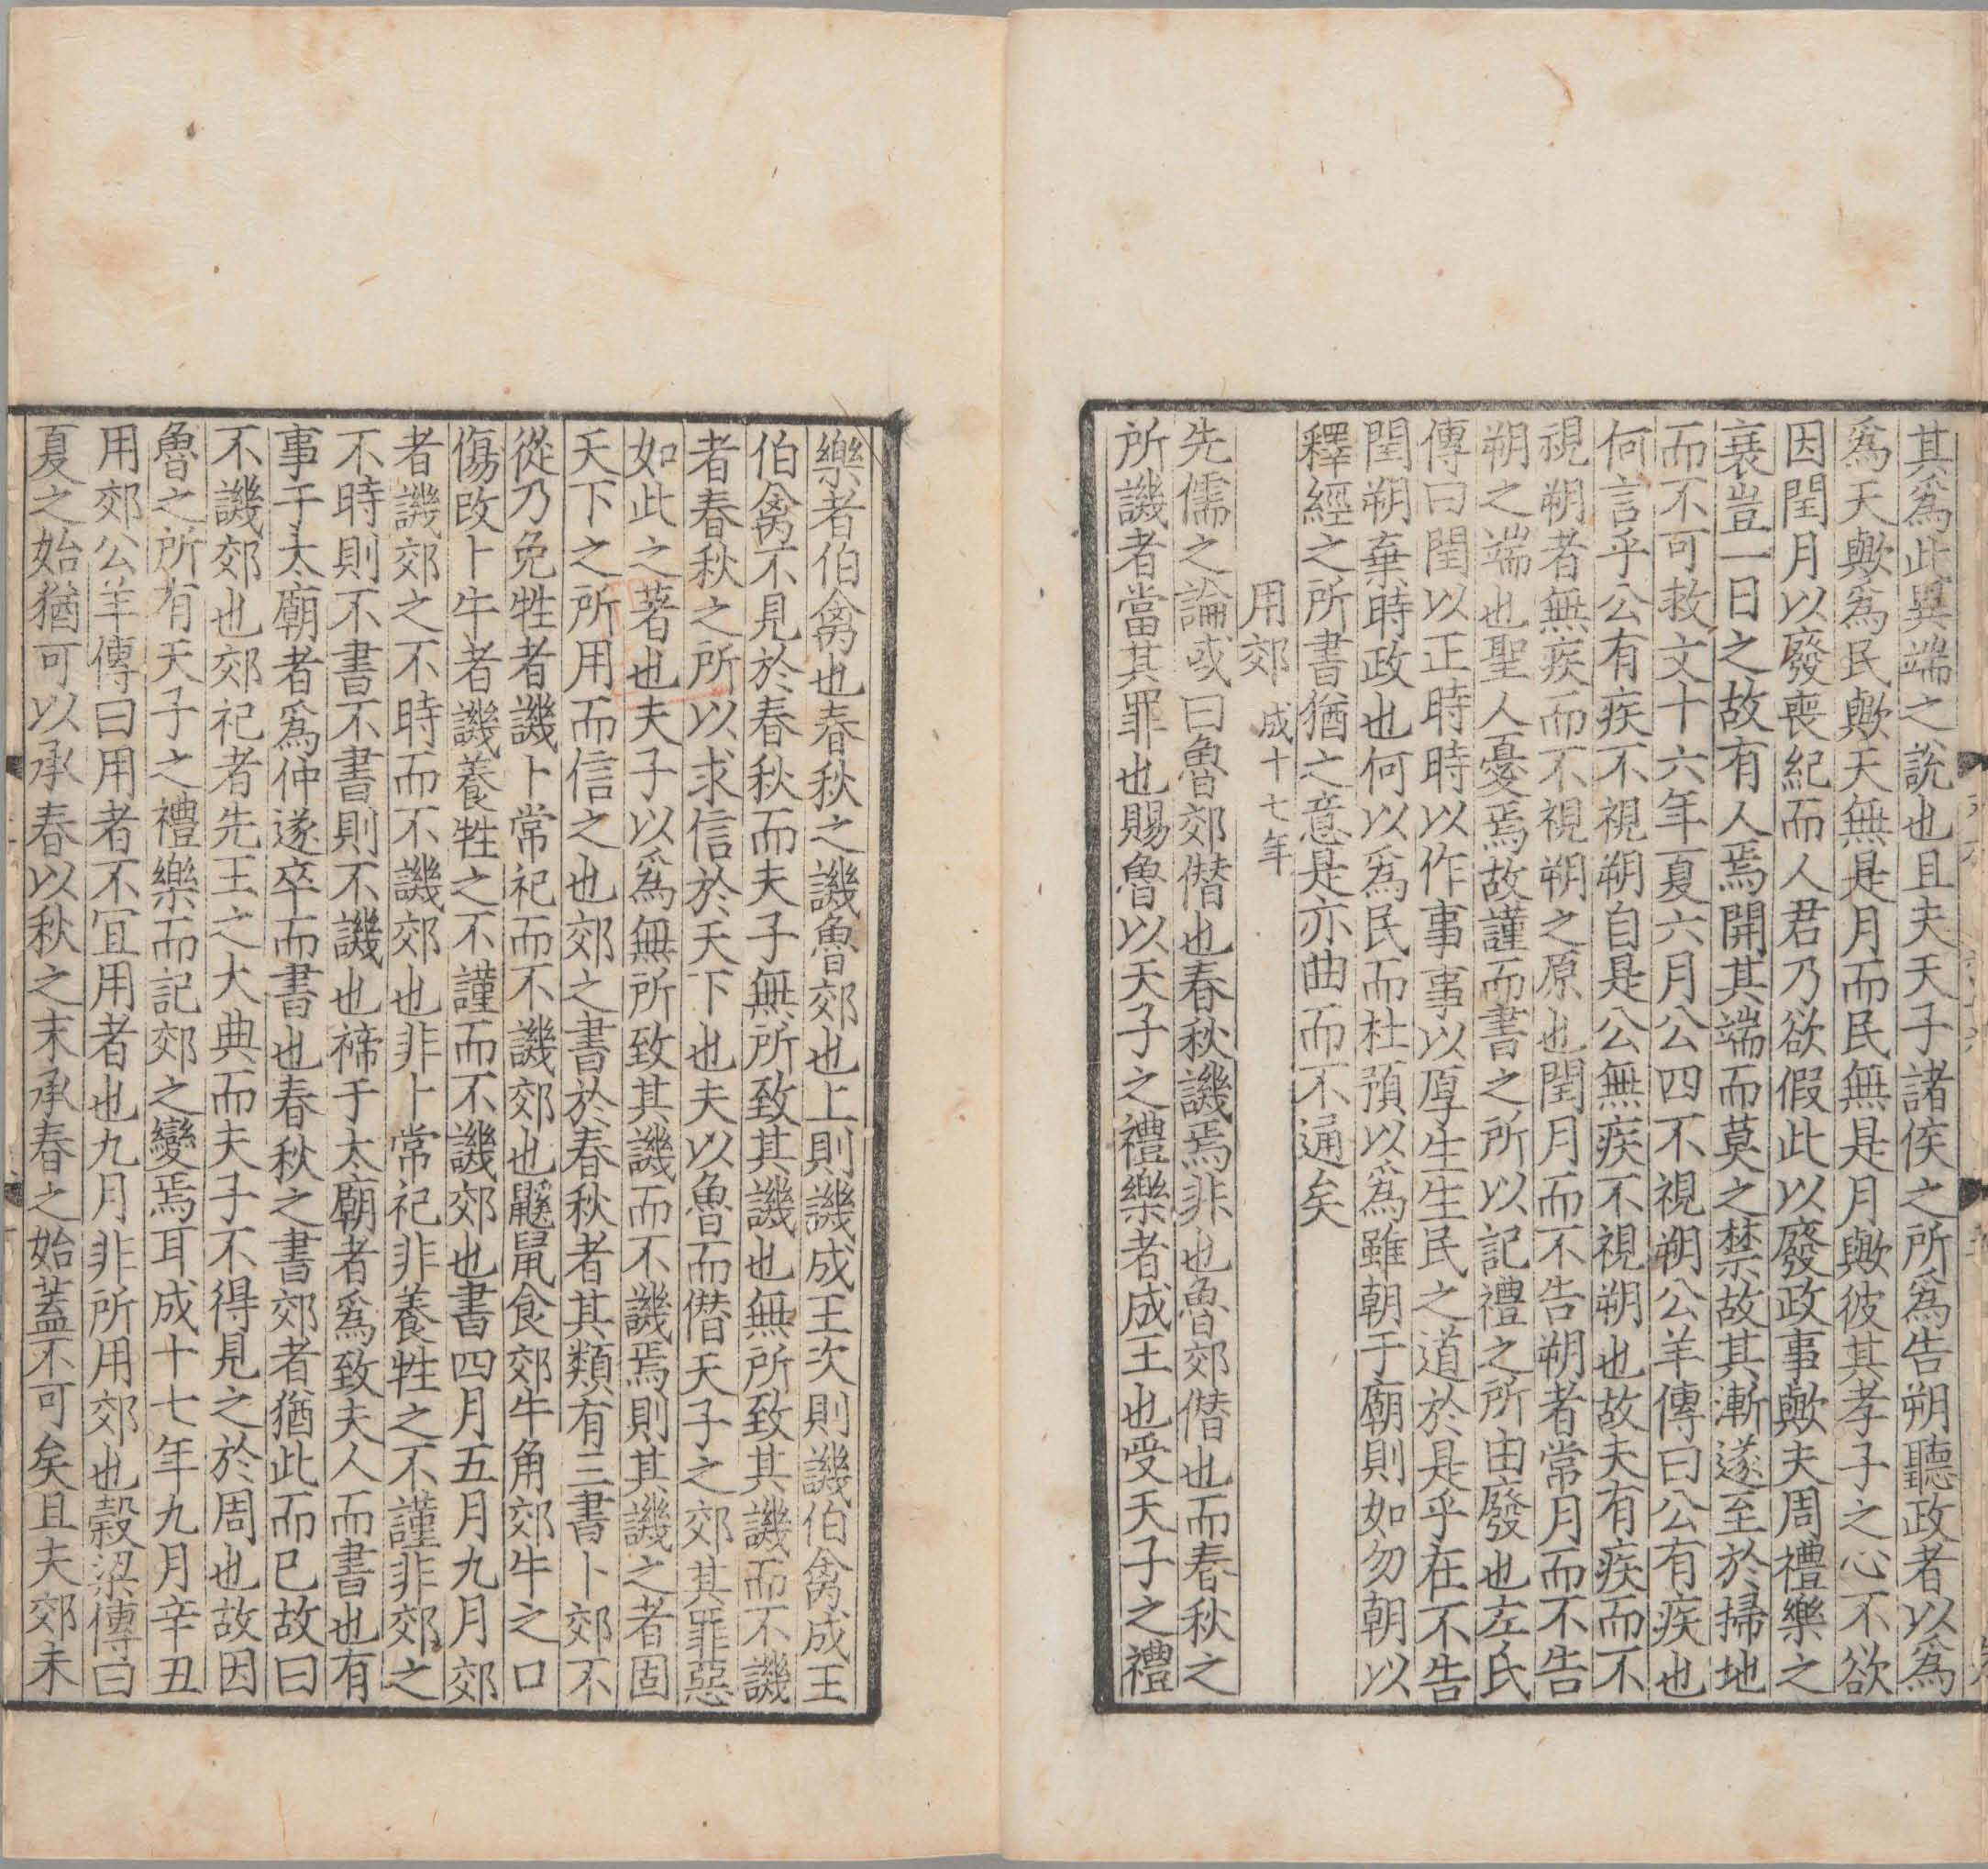 其爲此異端之說也且夫天子諸侯之所爲告朔聽政者以爲
爲天歟爲民歟天無是月而民無是月歟彼其孝子之心不欲
因閏月以廢喪紀而人君乃欲假此以廢政事歟夫周禮樂之
衰豈一日之故有人焉開其端而莫之禁故其漸遂至於掃地
而不可救文十六年夏六月公四不視朔公羊傳曰公有疾也
何言乎公有疾不視朔自是公無疾不視朔也故夫有疾而不
視朔者無疾而不視朔之原也閏月而不告朔者常月而不告
朔之端也聖人憂焉故謹而書之所以記禮之所由廢也左氏
傳曰閏以正時時以作事事以厚生生民之道於是乎在不告
閏朔棄時政也何以爲民而杜預以爲雖朝于廟則如勿朝以
釋經之所書猶之意是亦曲而不通矣
用郊 成十七年
先儒之論或曰魯郊僭也春秋譏焉非也魯郊僭也而春秋之
所譏者當其罪也賜魯以天子之禮樂者成王也受天子之禮
樂者伯禽也春秋之譏魯郊也上則譏成王次則譏伯禽成王
伯禽不見於春秋而夫子無所致其譏也無所致其譏而不譏
者春秋之所以求信於天下也夫以魯而僭天子之郊其罪惡
如此之著也夫子以爲無所致其譏而不譏焉則其譏之者固
天下之所用而信之也郊之書於春秋者其類有三書卜郊不
從乃免牲者譏卜常祀而不譏郊也鼷鼠食郊牛角郊牛之口
傷改卜牛者譏養牲之不謹而不譏郊也書四月五月九月郊
者譏郊之不時而不譏郊也非卜常祀非養牲之不謹非郊之
不時則不書不書則不譏也禘于太廟者爲致夫人而書也有
事于太廟者爲仲遂卒而書也春秋之書郊者猶此而已故曰
不譏郊也郊祀者先王之大典而夫子不得見之於周也故因
魯之所有天子之禮樂而記郊之變焉耳成十七年九月辛丑
用郊公羊傳曰用者不宜用者也九月非所用郊也穀梁傳曰
夏之始猶可以承春以秋之末承春之始蓋不可矣且夫郊未